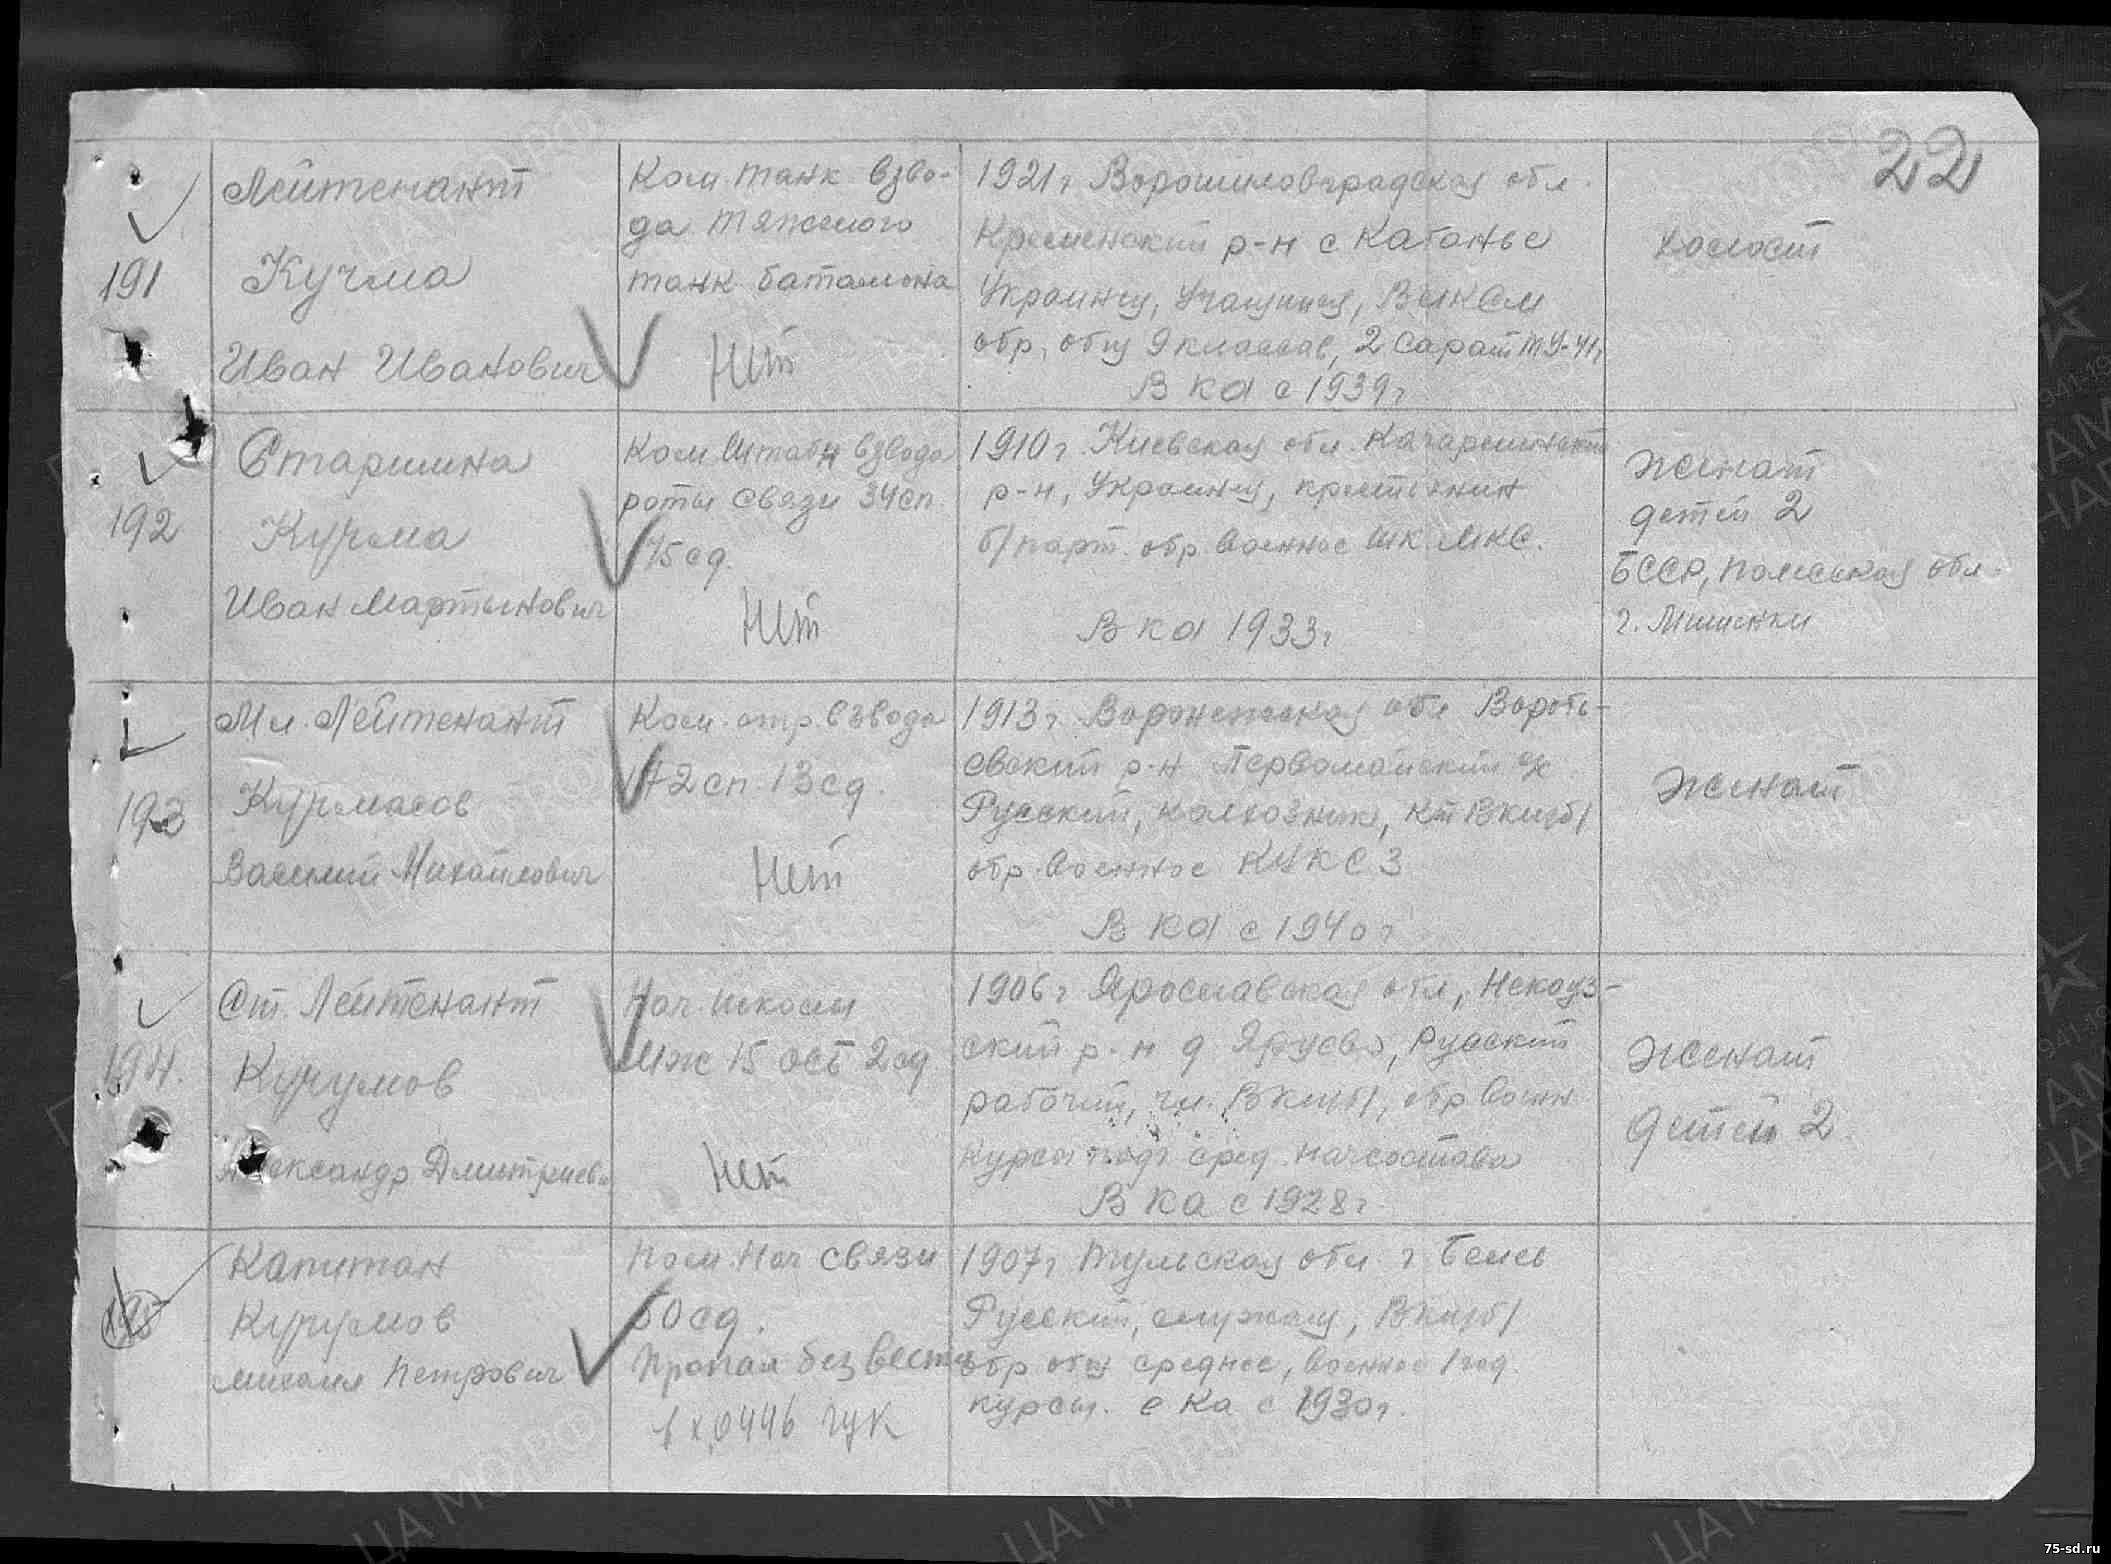 22
191
Лейтенант
Кучма
Иван Иванович
Ком. танк взво-
да тяжелого
танк. батальона
Нет
1921г Ворошиловградская обл.
Кременский р-н с Кабанье
Украинец, Учащийся, ВЛКСМ
обр. общ 9 классов, 2 Сарат ТУ-41г
В КА с 1939г
холост
192
Старшина
Кучма
Иван Мартынович
Ком Штабн взвода
роты связи 34сп.
75сд.
Нет
1910г. Киевская обл.
р-н, Украинец, крестьянин
б/парт. обр. Военное шк. МКС.
В КА 1933г
женат
детей 2
БССР, Полесская обл.
193
Мл. Лейтенант
Курмасов
Василий Михайлович
Ком. стр. взвода
2сп. 13сд.
Нет
1913г. Воронежская обл Воробь-
евский р-н Первомайский с/с
Русский, колхозник, Кт ВКП/б/
обр. Военное КУКС З
В КА с 1940г
женат
194.
Ст. Лейтенант
Кучумов
Александр Дмитриеви
Нач. школы
МЖ 15 осб 2сд
Нет
1906г Ярославская обл, Некоуз-
ский р-н д Ярусово, Русский
рабочий, чл. ВКП/б/, обр Воен
Курсы подг сред. начсостава
В КА с 1928г.
женат
детей 2
195
Капитан
Кучумов
Михаил Петрович
Пом. Нач связи
50сд.
Пропал без вести
вх 0446 ГУК
1907г Тульская обл. г Белев
Русский, служащ, ВКП/б/
обр общ среднее, Военное 1 год
курсы. в КА с 1930г.
ЦА МО РФ
75-sd.ru